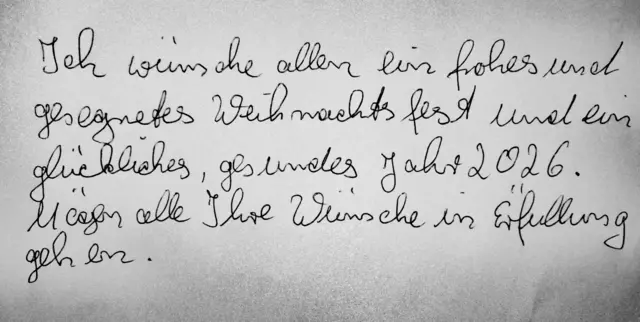 Ich wünsche allen ein frohes und
gesegnetes Weihnachtsfest und ein
glückliches, gesundes Jahr 2026.
Mögen alle Ihre Wünsche in Erfüllung
gehen.